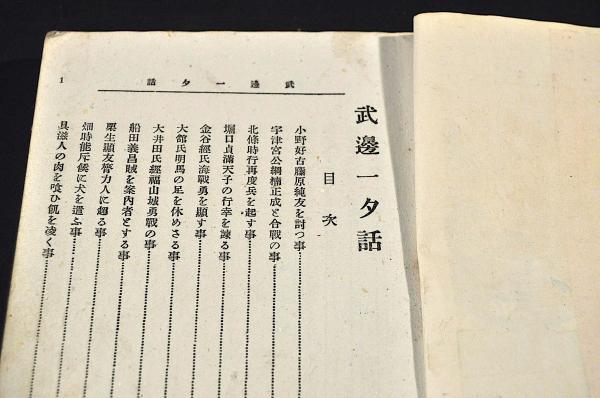 武邊一夕話
1
武邊一夕話
目次
小野好古藤原純友を討つ事
宇津宮公綱楠正成と合戰の事
北條時行再度兵を起す事
堀口貞滿天子の行幸を諫る事
金谷經氏海戰勇を顯す事
大館氏明馬の足を休めさる事
大井田氏經福山城勇戰の事
船田義昌賊を案內者とする事
栗生顯友膂力人に超る事
畑時能斥候に犬を遣ふ事
具滋人の肉を喰ひ飢を凌ぐ事